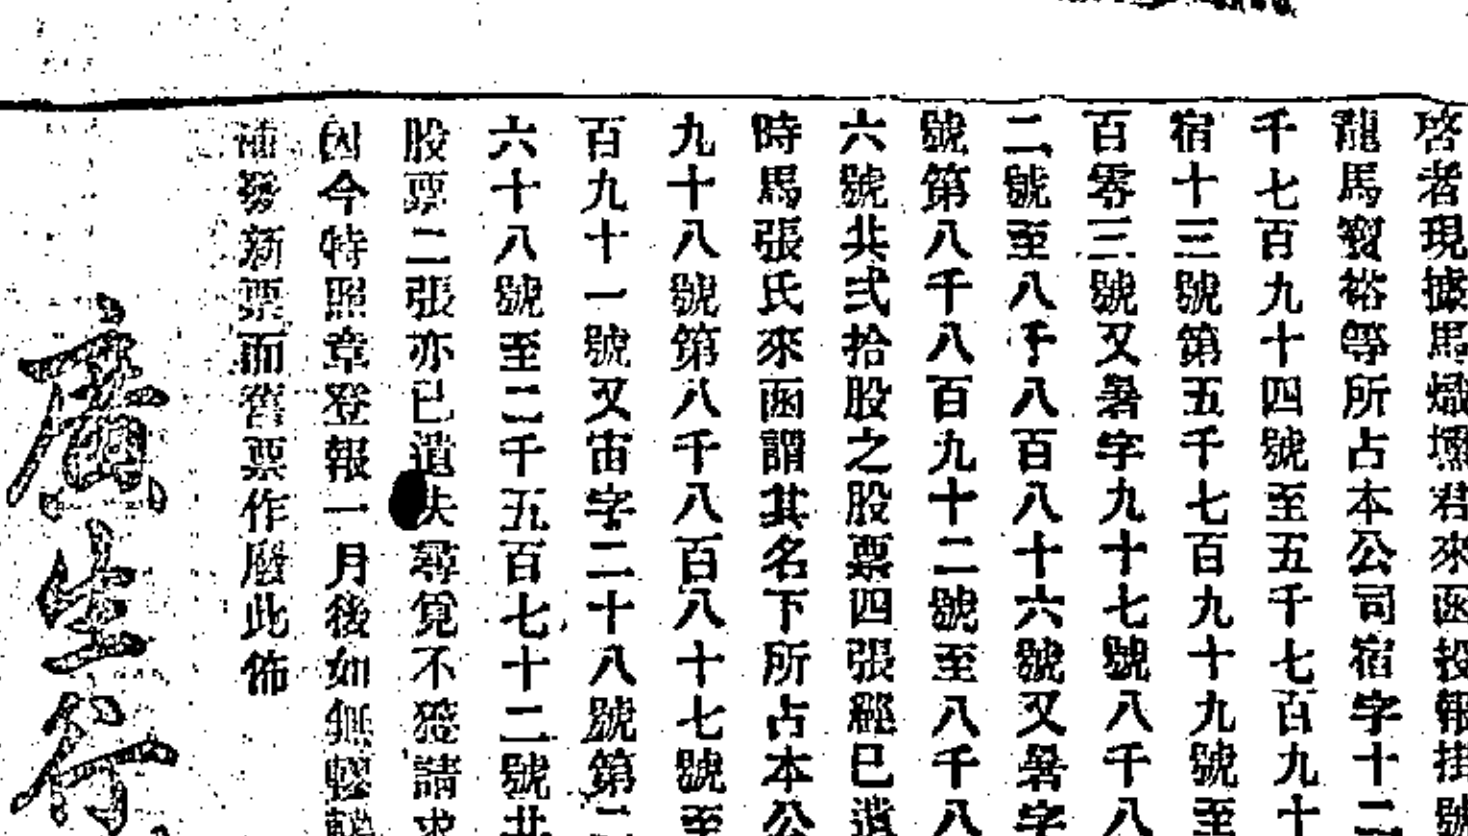 啓者現據馬熾壎君來函投報掛號
龍馬寶裕等所占本公司宿字十二
千七百九十四號至五千七百九十
宿十三號第五千七百九十九號至
百零三號又暑字九十七號八千八
二號至八千八百八十六號又暑字
號第八千八百九十二號至八千八
六號共弍拾股之股票四張經已遺
時馬張氏來函謂其名下所占本公
九十八號第八千八百八十七號至
百九十一號又宙字二十八號第二
六十八號至二千五百七十二號共
股票二張亦已遺失尋覓不獲請求
因今特照章登報一月後如無轇轕
補發新票而舊票作廢此佈
廣生行